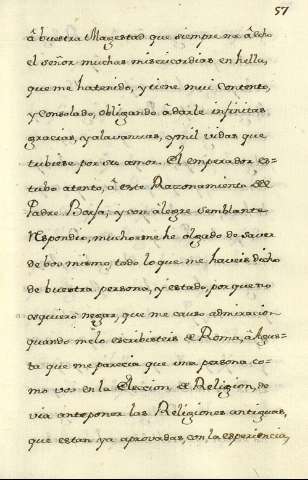 57
â buestra Magestad que siempre me â echo
el señor muchas misericordias en hella,
que me hatenido, y tiene mui contento,
y consolado, obligando âdarle infinitas
gracias, y alavanzas, y mil vidas que
tubiese por su amor. El emperador es-
tubo atento, â este Razonamiento del
Padre Borja; y con âlegre semblante
Respondio, muchos me he olgado de saver
de bos mismo, todo lo que me haveis dicho
de buestra persona, y estado, porque no
os quiero negar, que me causo admiracion
quando me lo escribisteis de Roma, â Agus-
ta que me parecia que una persona co-
mo vos en la Eleccion de Religion, de
via anteponer las Religiones antiguas,
que estan ya aprovadas, con la esperiencia,